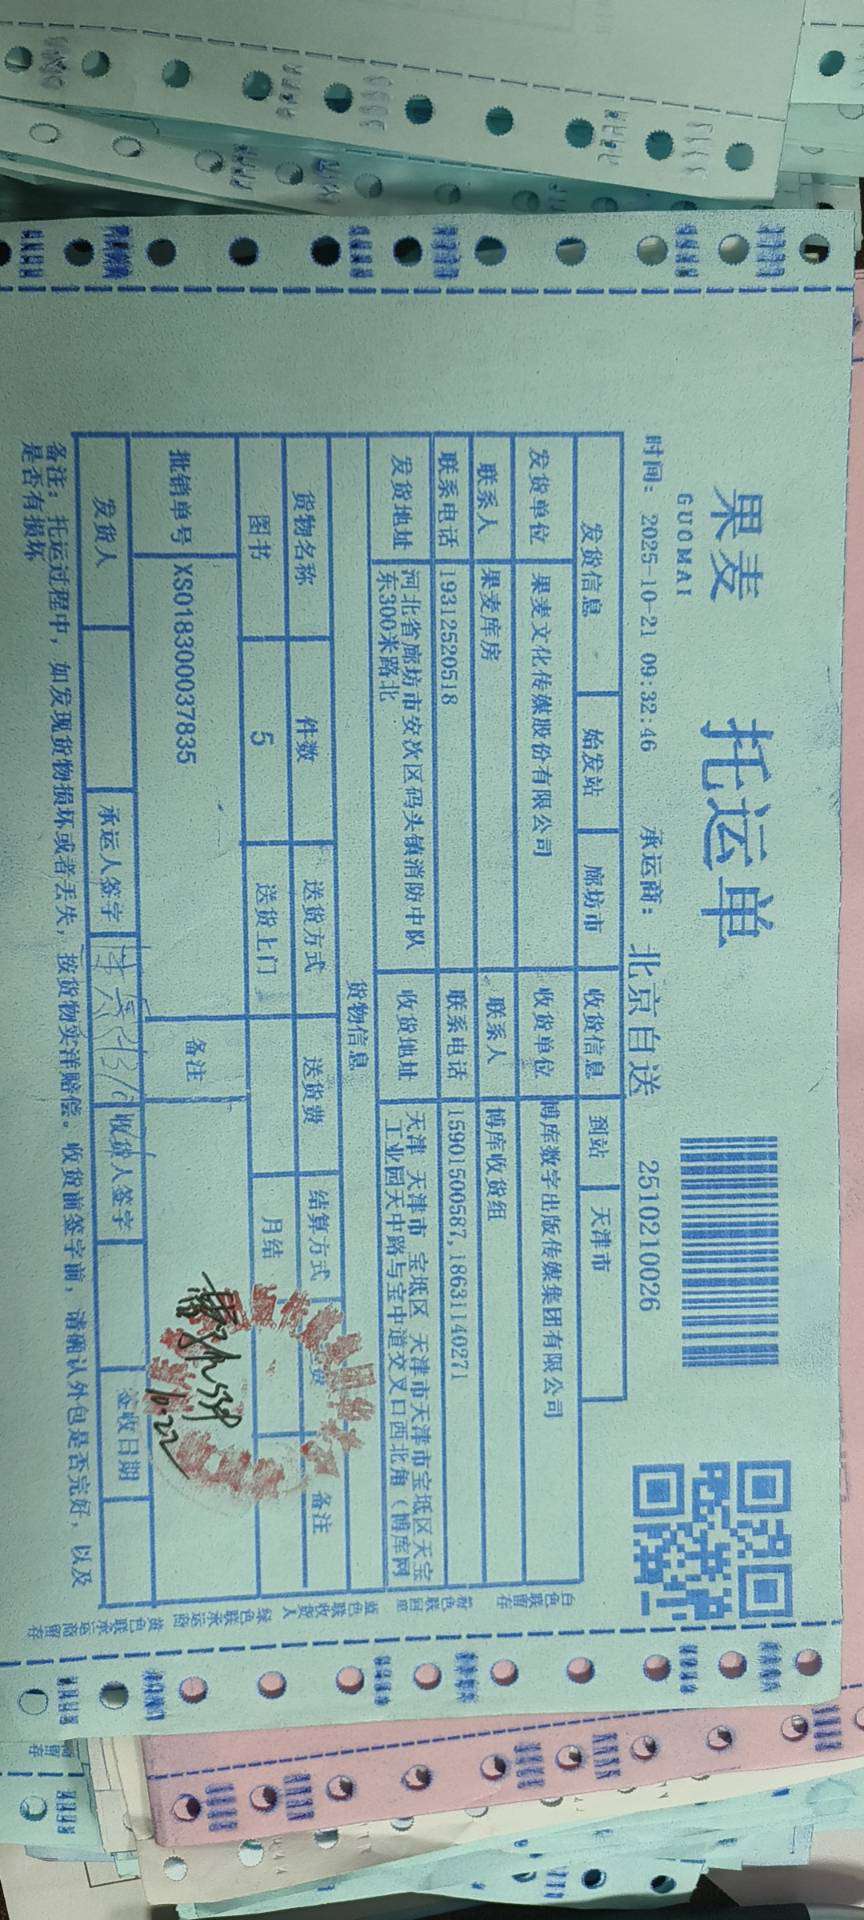 果麦
GUOMAI
托运单
时间: 2025-10-21 09:32:46 承运商: 北京自送 2510210026
发货信息 始发站 廊坊市 收货信息 到站 天津市
发货单位 果麦文化传媒股份有限公司 收货单位 博库数字出版传媒集团有限公司
联系人 果麦库房 联系人 博库收货组
联系电话 19312520518 联系电话 15901500587,18631140271
发货地址 河北省廊坊市安次区码头镇消防中队东300米路北 收货地址 天津 天津市 宝坻区 天津市天津市宝坻区天宝工业园天中路与宝中道交叉口西北角(博库网
货物信息
货物名称 件数 送货方式 送货费 结算方式 费 备注
图书 5 送货上门 月结
批销单号 XS018300037835 备注
10.22
发货人 承运人签字 收货人签字 签收日期
备注: 托运过程中, 如发现货物损坏或者丢失, 按货物实洋赔偿。收货前签字前, 请确认外包是否完好, 以及
是否有损坏
白色联留存 粉色联回单 蓝色联收货人 绿色联承运商 黄色联承运商留存